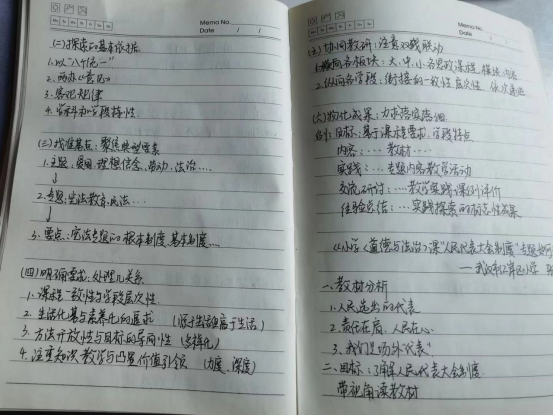 Memo No.
Date / /
Mo Tu We Th Fr Sa Su
(二)探索的基本依据
1.以"八个统一"
2.两办《意见》
3.客观规律
4.学科和学段特性
(三)找准基点:聚焦典型要素
1.主题:爱国、理想信念、劳动、法治....
↓
2.专题:宪法教育、民法...
↓
3.要点:宪法专题的根本制度、基本制度....
(四)明确要求:处理几关系
1.课程一致性与学段层次性
2.生活化基与素养化的要求 (源于生活高于生活)
3.方法开放性与目标的导向性 (多样化)
4.注重知识教学与凸显价值引领 (力度、深度)
Memo No.
Date / /
Mo Tu We Th Fr Sa Su
协同教研:注意双线联动
1.横向各板块:大、中、小各思政课程 模块内容
2.纵向各学段:衔接的一致性 层次性
(六)物化成果:力求落实落细
目标:基于课标要求,学段特点
内容:...教材...
实践:...专题内容教学活动
交流研讨:...教学实践课例评价
经验总结:...实践探索的标志性成果
《小学《道德与法治》课"人民代表大会制度"专题
一、教材分析
1.人民选出的代表
2.责任在肩,人民在心
3.我们是场外"代表"
二、目标:了解人民代表大会制度
带视角读教材